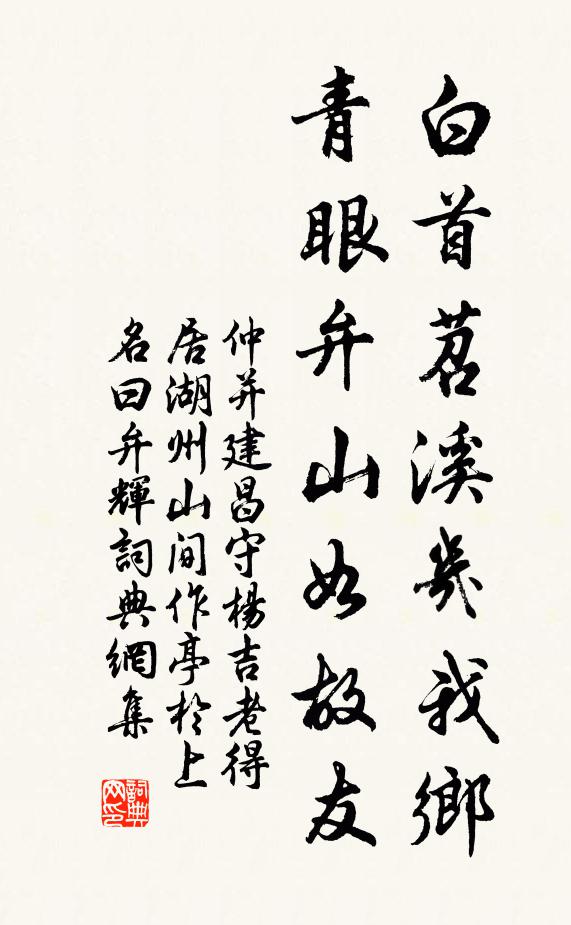 白首苕溪幾我鄉
青眼弁山如故友
仲并建昌守楊吉老得
居湖州山间作亭於上
名曰弁輝詞典網集
詞典网印